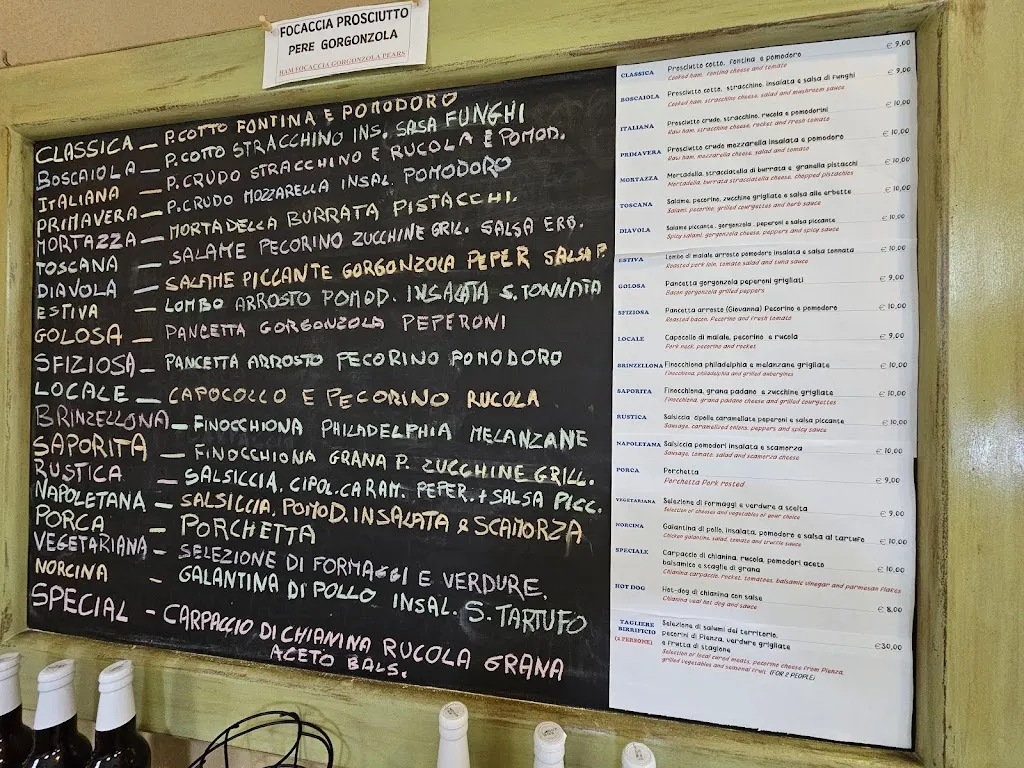 FOCACCIA PROSCIUTTO
PERE GORGONZOLA
HAM FOCACCIA GORGONZOLA PEARS
CLASSICA — P.COTTO FONTINA E POMODORO
BOSCAIOLA — P.COTTO STRACCHINO INS. SALSA FUNGHI
ITALIANA — P.CRUDO STRACCHINO E RUCOLA E POMOD.
PRIMAVERA — P.CRUDO MOZZARELLA INSAL. POMODORO
MORTAZZA — MORTADELLA BURRATA PISTACCHI.
TOSCANA — SALAME PECORINO ZUCCHINE GRIL. SALSA ERB.
DIAVOLA — SALAME PICCANTE GORGONZOLA PEPER SALSA P.
ESTIVA — LOMBO ARROSTO POMOD. INSALATA S. TONNATA
GOLOSA — PANCETTA GORGONZOLA PEPERONI
SFIZIOSA — PANCETTA ARROSTO PECORINO POMODORO
LOCALE — CAPOCOLLO E PECORINO RUCOLA
BRINZELLONA — FINOCCHIONA PHILADELPHIA MELANZANE
SAPORITA — FINOCCHIONA GRANA P. ZUCCHINE GRILL.
RUSTICA — SALSICCIA, CIPOL.CARAM. PEPER. + SALSA PICC.
NAPOLETANA — SALSICCIA, POMOD. INSALATA & SCAMORZA
PORCA — PORCHETTA
VEGETARIANA — SELEZIONE DI FORMAGGI E VERDURE.
NORCINA — GALANTINA DI POLLO INSAL. S. TARTUFO
SPECIAL — CARPACCIO DI CHIANINA RUCOLA GRANA
ACETO BALS.
CLASSICA Prosciutto cotto, fontina e pomodoro € 9,00
Cooked ham, fontina cheese and tomato
BOSCAIOLA Prosciutto cotto, stracchino, insalata e salsa di funghi € 9,00
Cooked ham, stracchino cheese, salad and mushroom sauce
ITALIANA Prosciutto crudo, stracchino, rucola e pomodorini € 10,00
Raw ham, stracchino cheese, rocket and fresh tomato
PRIMAVERA Prosciutto crudo mozzarella insalata e pomodoro € 10,00
Raw ham, mozzarella cheese, salad and tomato
MORTAZZA Mortadella, stracciatella di burrata e granella pistacchi € 10,00
Mortadella, burrata stracciatella cheese, chopped pistachios
TOSCANA Salame, pecorino, zucchine grigliate e salsa alle erbette € 10,00
Salami, pecorino, grilled courgettes and herb sauce
DIAVOLA Salame piccante, gorgonzola, peperoni e salsa piccante € 10,00
Spicy salami, gorgonzola cheese, peppers and spicy sauce
ESTIVA Lombo di maiale arrosto pomodoro insalata e salsa tonnata € 10,00
Roasted pork loin, tomato salad and tuna sauce
GOLOSA Pancetta gorgonzola peperoni grigliati € 9,00
Bacon gorgonzola grilled peppers
SFIZIOSA Pancetta arrosto (Giovanna) Pecorino e pomodoro € 10,00
Roasted bacon, Pecorino and fresh tomato
LOCALE Capocollo di maiale, pecorino e rucola € 9,00
Pork neck, pecorino and rocket
BRINZELLONA Finocchiona philadelphia e melanzane grigliate € 10,00
Finocchiona, philadelphia and grilled aubergines
SAPORITA Finocchiona, grana padano e zucchine grigliate € 10,00
Finocchiona, grana padano cheese and grilled courgettes
RUSTICA Salsiccia cipolle caramellate peperoni e salsa piccante € 10,00
Sausage, caramelized onions, peppers and spicy sauce
NAPOLETANA Salsiccia pomodori insalata e scamorza € 10,00
Sausage, tomato, salad and scamorza cheese
PORCA Porchetta € 9,00
Porchetta Pork rosted
VEGETARIANA Selezione di formaggi e verdure a scelta € 9,00
Selection of cheeses and vegetables of your choice
NORCINA Galantina di pollo, insalata, pomodoro e salsa al tartufo € 10,00
Chicken galantine, salad, tomato and truccle sauce
SPECIALE Carpaccio di chianina, rucola, pomodori aceto
balsamico e scaglie di grana € 10,00
Chianina carpaccio, rocket, tomatoes, balsamic vinegar and parmesan flakes
HOT DOG Hot-dog di chianina con salse € 8,00
Chianina veal hot dog and sauce
TAGLIERE BIRRIFICIO (2 PERSONE) Selezione di salumi del territorio,
pecorini di Pienza, verdure grigliate
e frutta di stagione €30,00
Selection or local cured meats, pecorino cheese from Pienza,
grilled vegetables and seasonal fruit (FOR 2 PEOPLE)